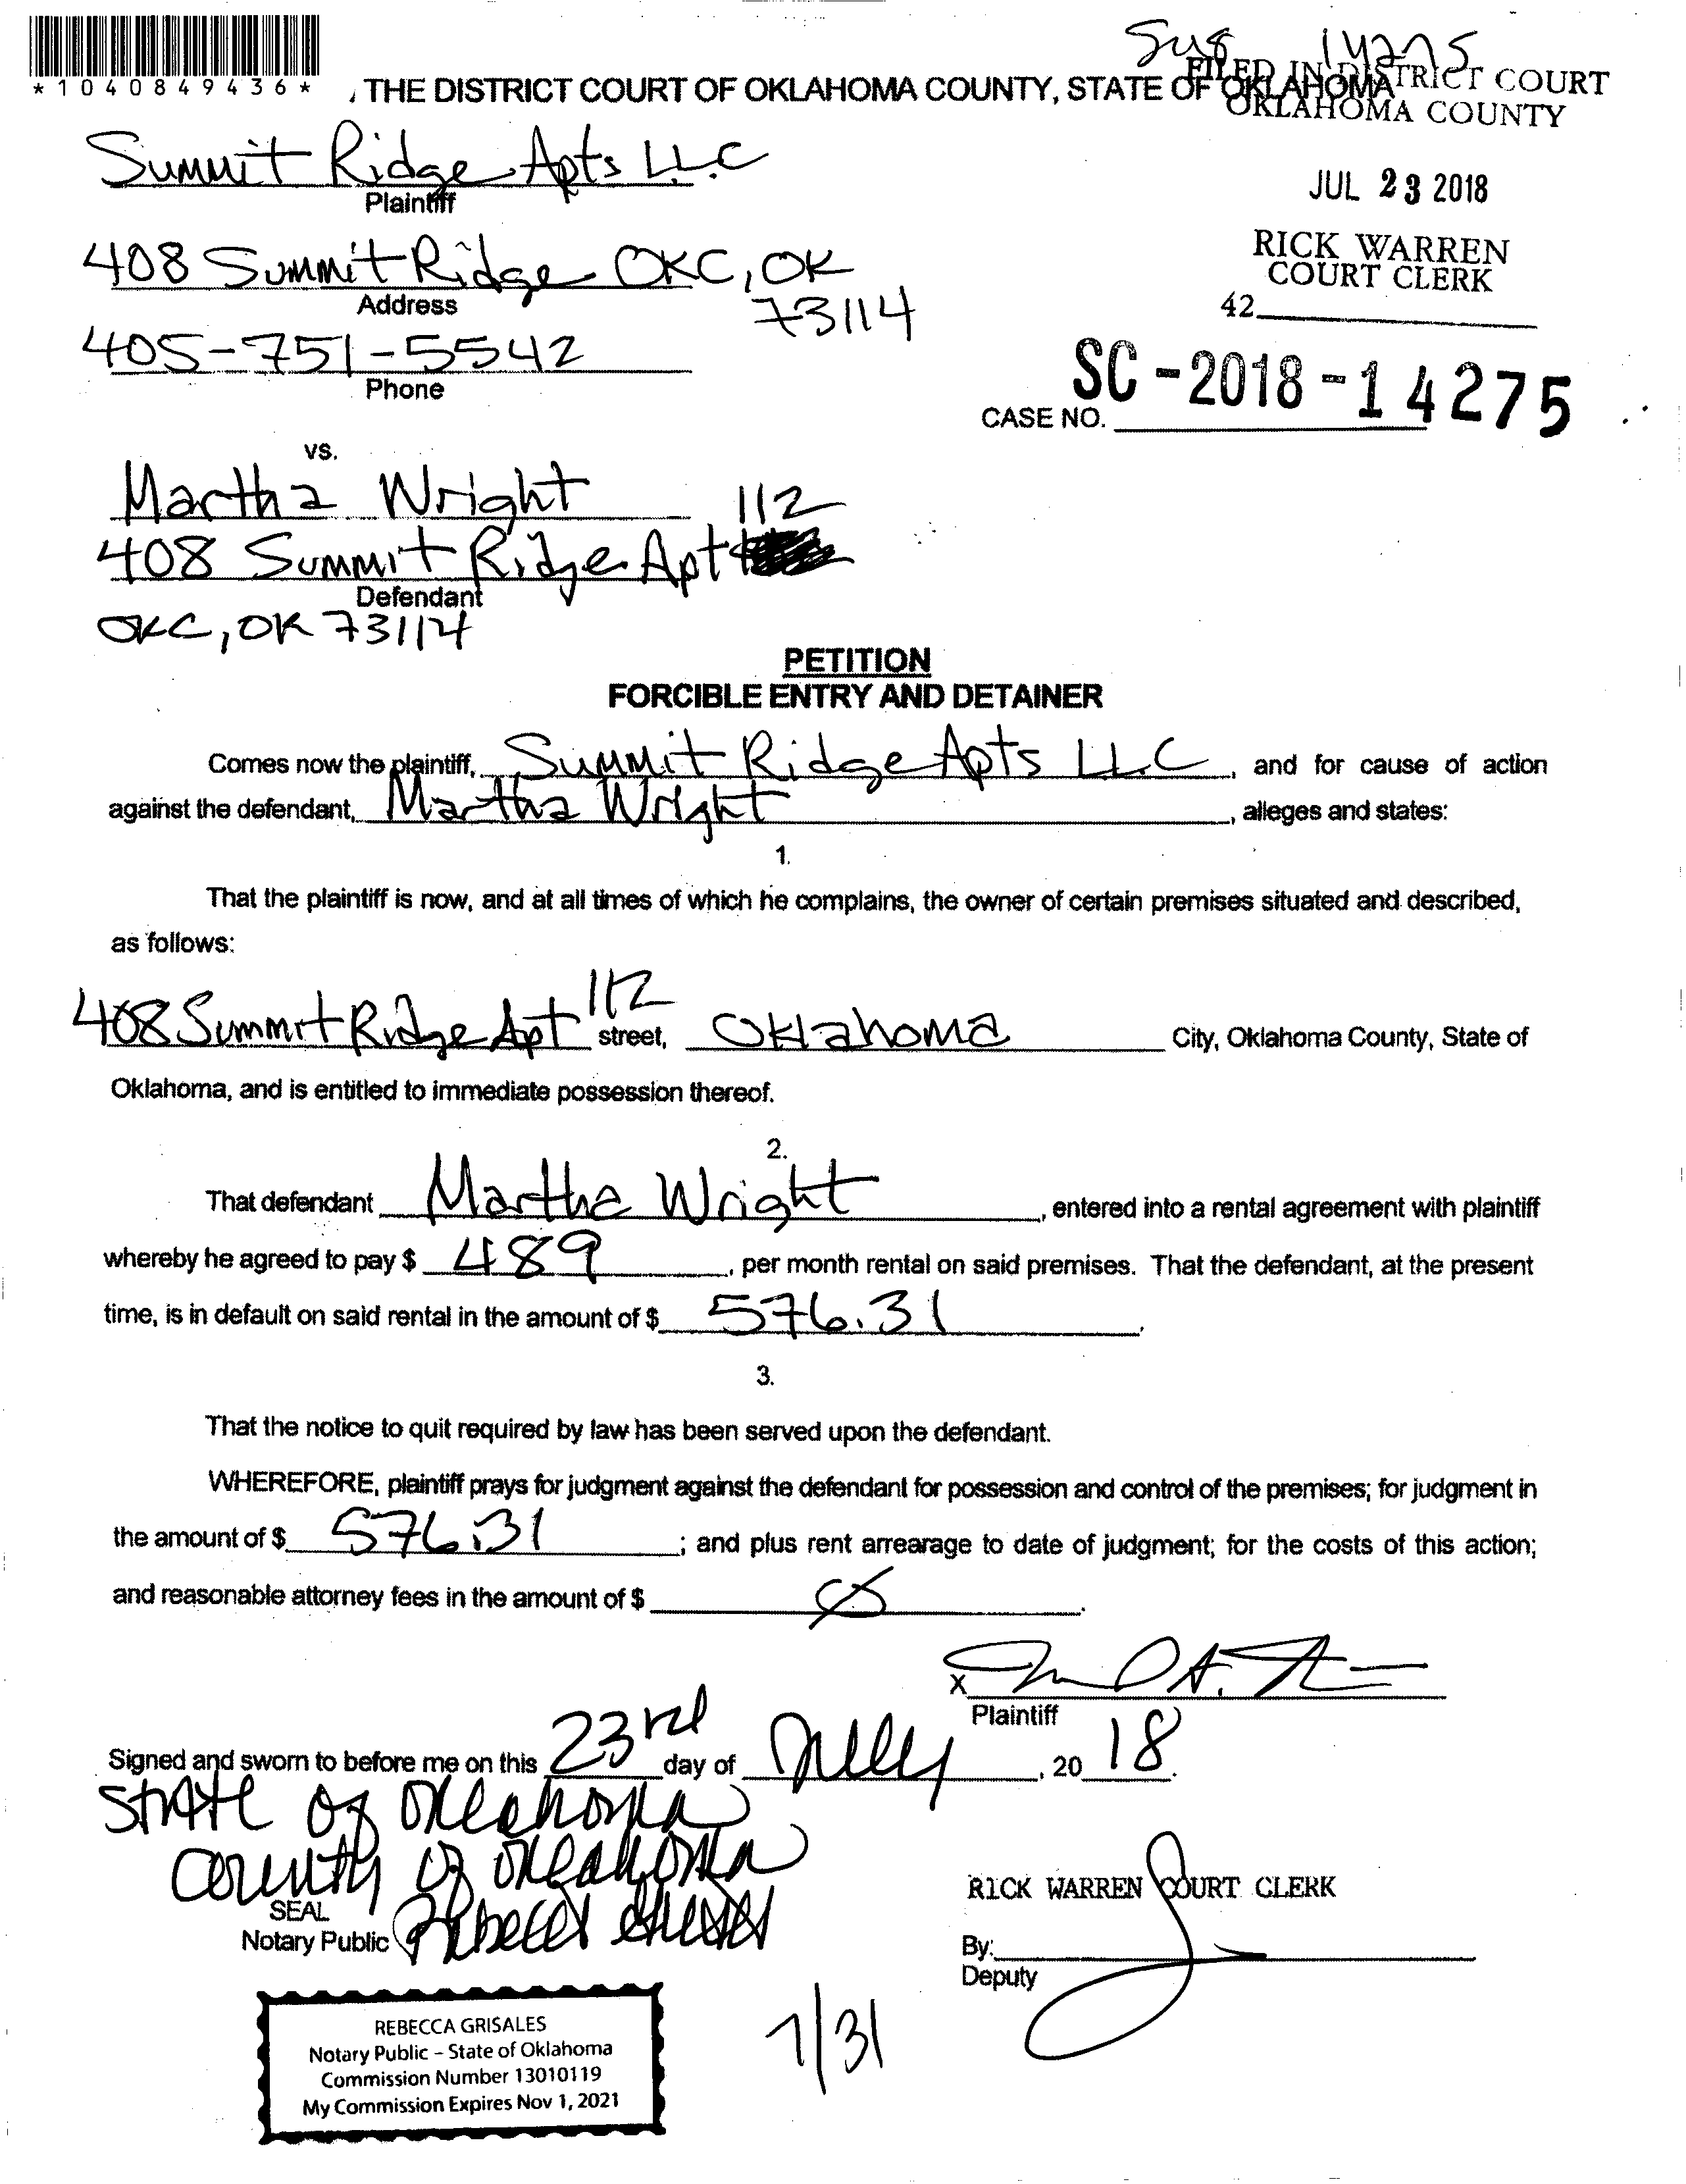 *1040849436*
Sus 14275
, THE DISTRICT COURT OF OKLAHOMA COUNTY, STATE OF OKLAHOMA
FILED IN DISTRICT COURT
OKLAHOMA COUNTY
Summit Ridge Apts LLC
Plaintiff
JUL 23 2018
408 Summit Ridge OKC, OK
73114
Address
RICK WARREN
COURT CLERK
42
405-751-5542
Phone
CASE NO. SC-2018-14275
vs.
Martha Wright
112
408 Summit Ridge Apt
Defendant
OKC, OK 73114
PETITION
FORCIBLE ENTRY AND DETAINER
Comes now the plaintiff, Summit Ridge Apts LLC, and for cause of action
against the defendant, Martha Wright, alleges and states:
1.
That the plaintiff is now, and at all times of which he complains, the owner of certain premises situated and described,
as follows:
408 Summit Ridge Apt 112 street, Oklahoma City, Oklahoma County, State of
Oklahoma, and is entitled to immediate possession thereof.
2.
That defendant Martha Wright, entered into a rental agreement with plaintiff
whereby he agreed to pay $ 489, per month rental on said premises. That the defendant, at the present
time, is in default on said rental in the amount of $ 576.31.
3.
That the notice to quit required by law has been served upon the defendant.
WHEREFORE, plaintiff prays for judgment against the defendant for possession and control of the premises; for judgment in
the amount of $ 576.31; and plus rent arrearage to date of judgment; for the costs of this action;
and reasonable attorney fees in the amount of $ Ø.
X
Plaintiff
Signed and sworn to before me on this 23rd day of July, 2018.
State of Oklahoma
County of Oklahoma
SEAL
Notary Public Rebecca Grisales
RICK WARREN COURT CLERK
By:
Deputy
REBECCA GRISALES
Notary Public – State of Oklahoma
Commission Number 13010119
My Commission Expires Nov 1, 2021
7/31